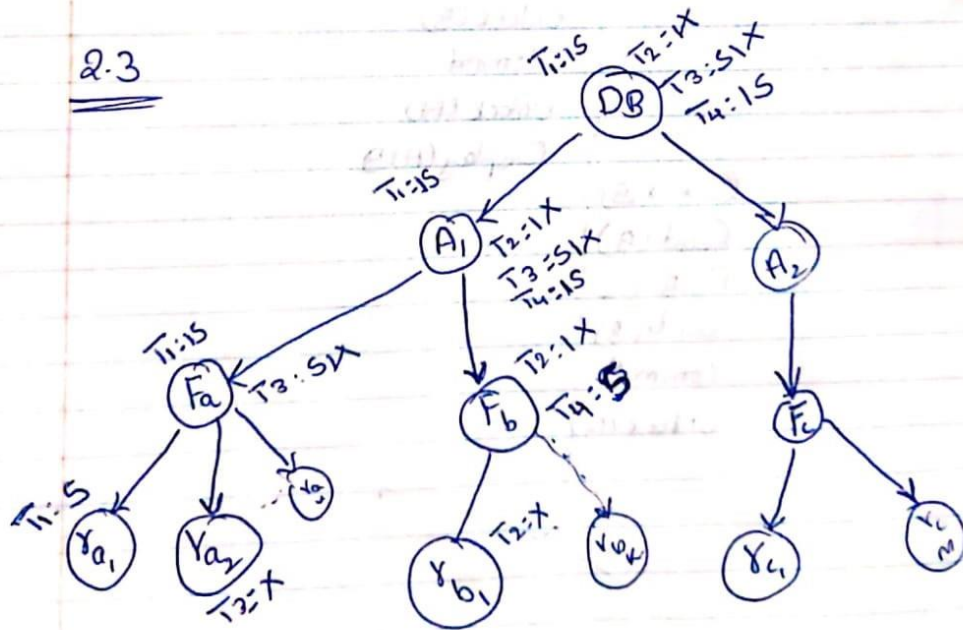 2.3
T1=IS
T2=IX
DB
T3=SIX
T4=IS
T1=IS
A1
T2=IX
T3=SIX
T4=IS
A2
T1=IS
Fa
T3=SIX
T2=IX
Fb
T4=S
Fc
T1=S
ra1
ra2
T3=X
T2=X
rb1
rbk
rc1
rcm